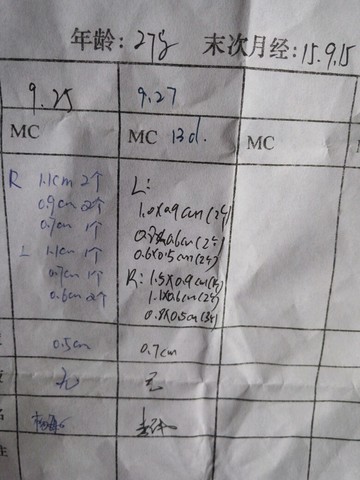 年龄：27岁 末次月经：15.9.15
9.25 9.27
MC MC 13d. MC
R 1.1cm 2个
0.9cm 2个
0.7cm 1个
L 1.1cm 1个
0.7cm 1个
0.6cm 2个
L:
1.0x0.9cm(2个)
0.6x0.5cm(2个)
R: 1.5x0.9cm
1.1x0.6cm(2个)
0.8x0.5cm
0.5cm 0.7cm
无 无